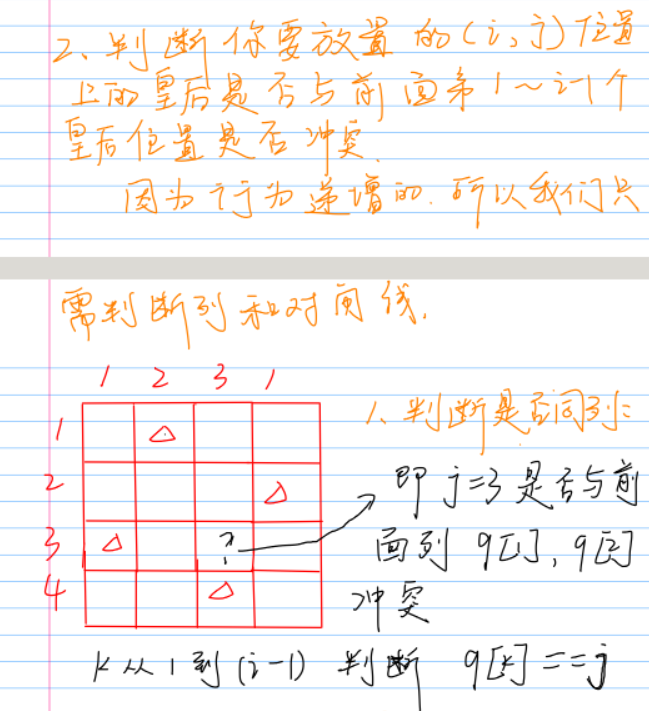 2、判断你要放置的(i,j)位置
上的皇后是否与前面第1~i-1个
皇后位置是否冲突.
因为i行为递增的.所以我们只
需判断列和对角线.
1 2 3 1
1
2
3 ?
4
1、判断是否同列:
即j=3是否与前
面列q[1],q[2]
冲突
k从1到(i-1)判断 q[k]==j